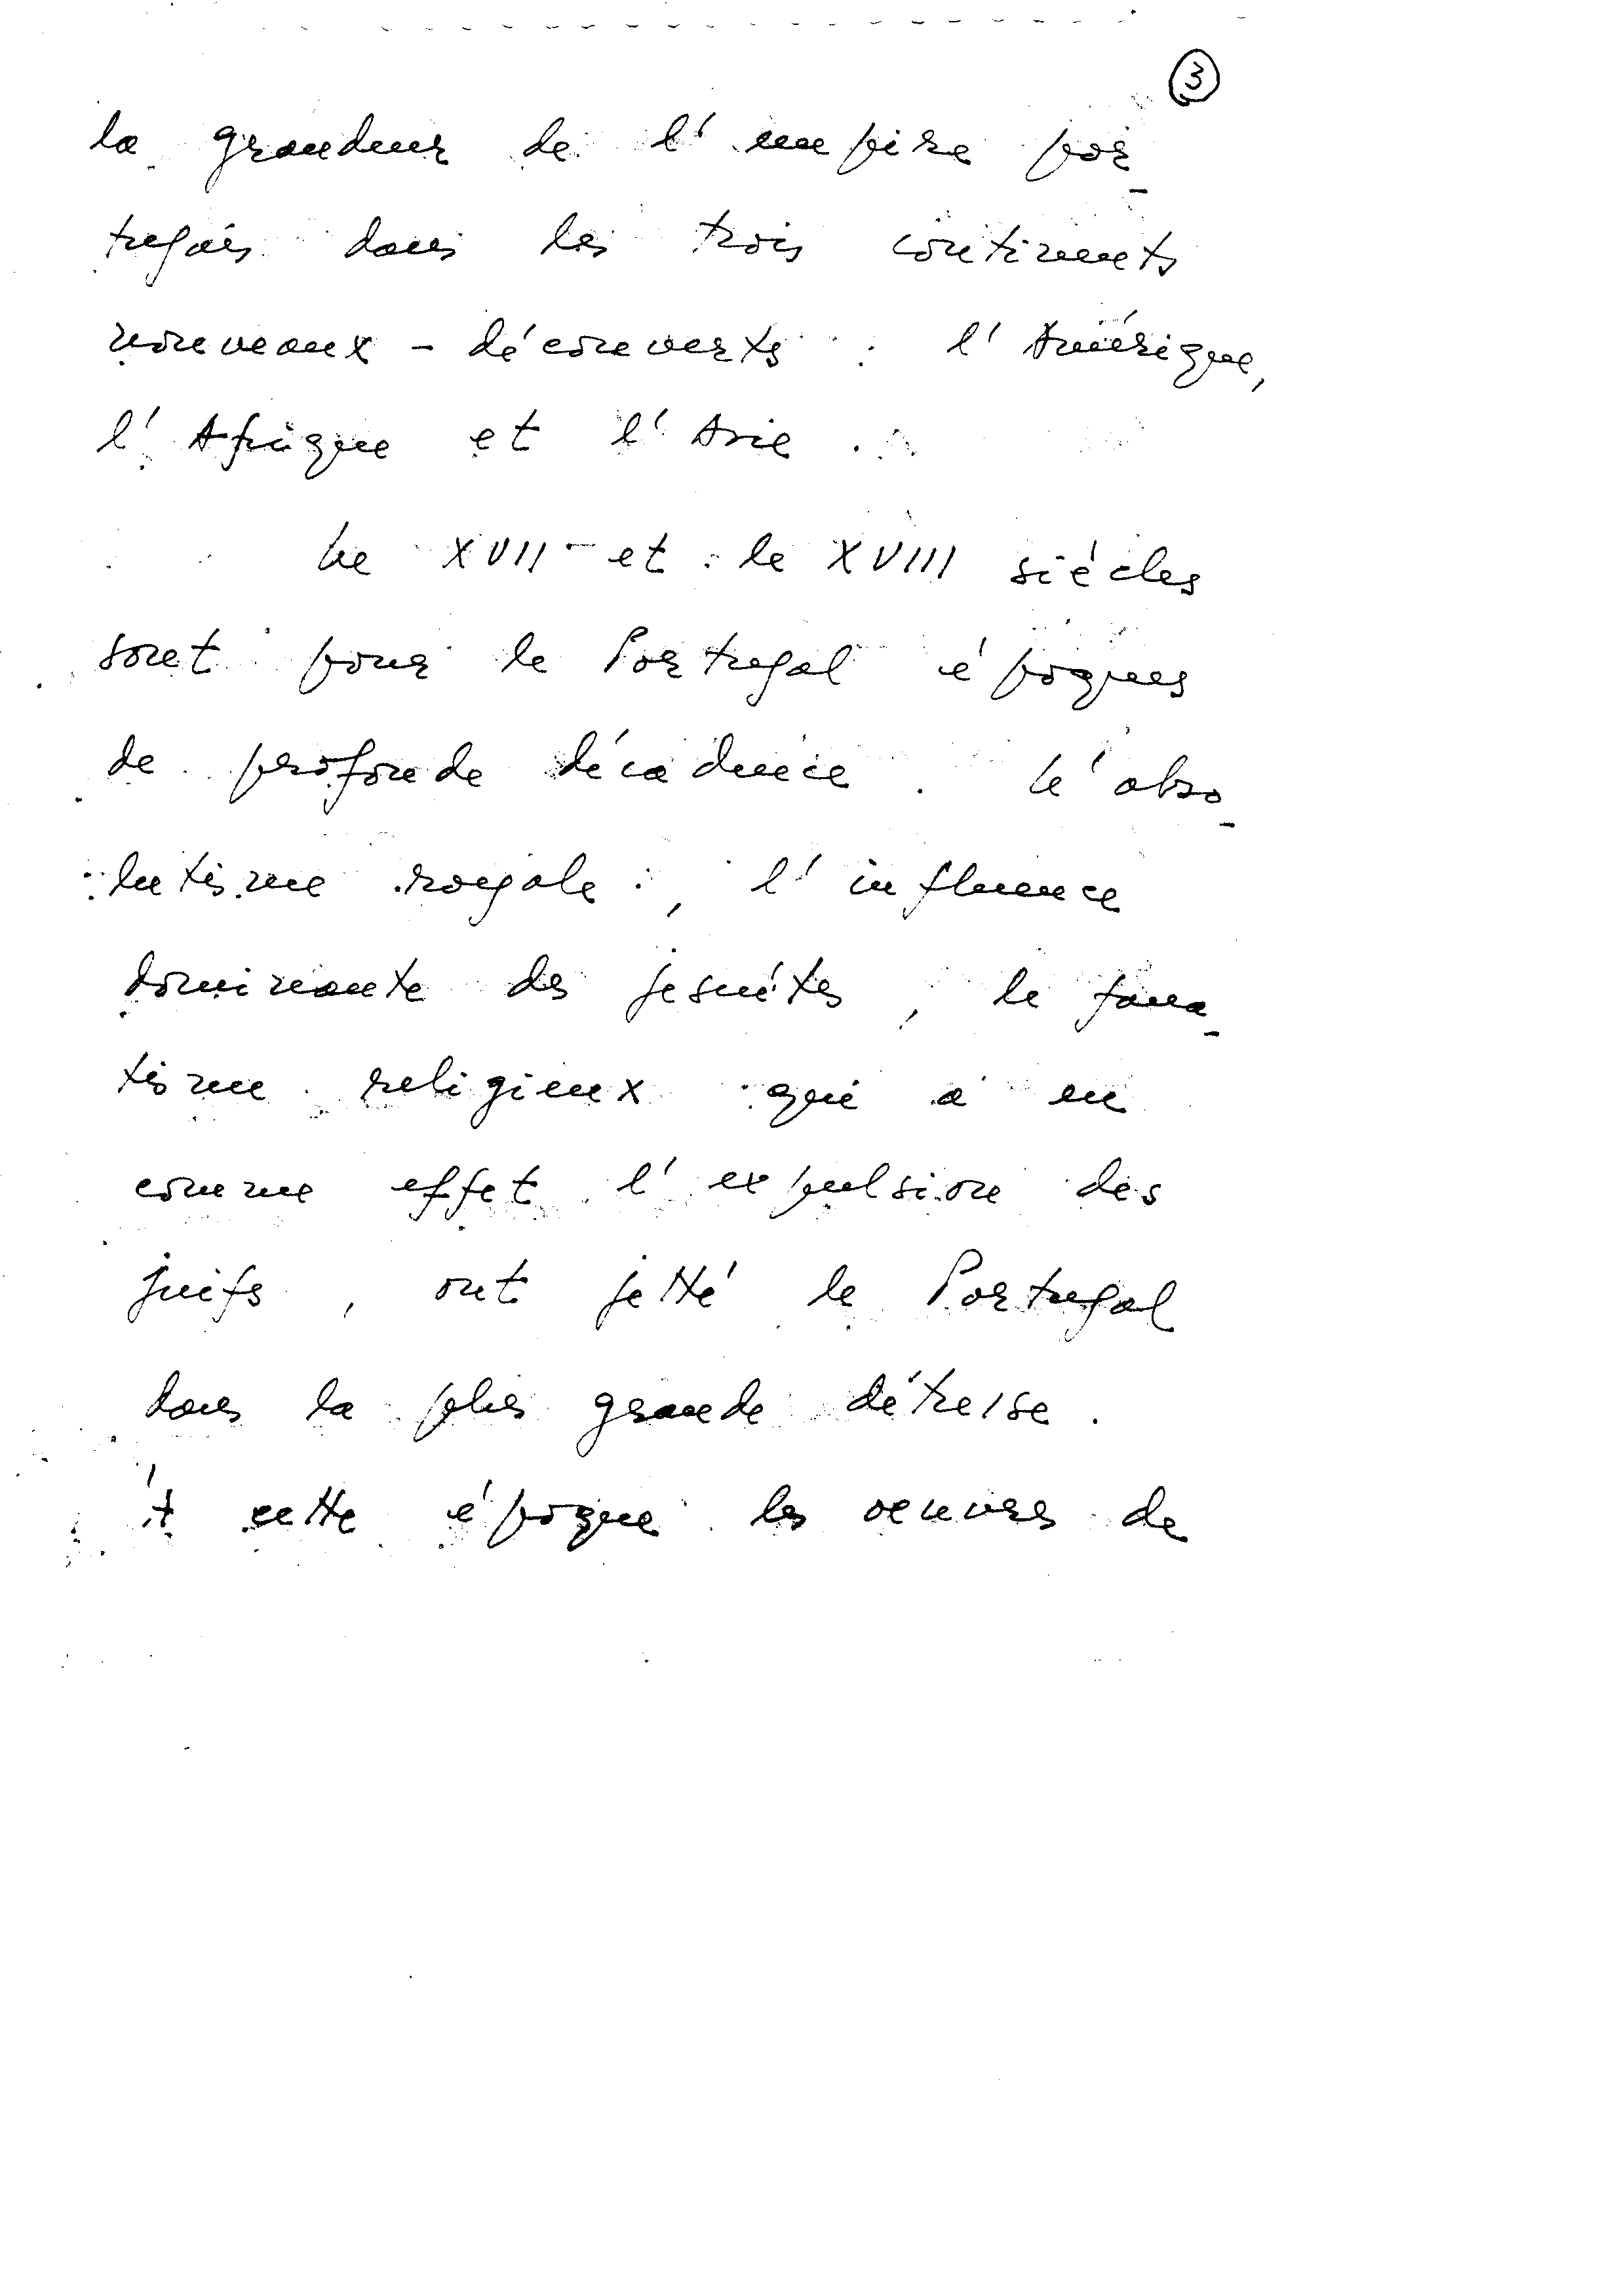 3
la grandeur de l'empire por_
tugais dans les trois continents
nouveaux-découverts : l'Amérique,
l'Afrique et l'Asie.
Le XVII et le XVIII siécles
sont pour le Portugal époques
de profonde décadence. L'abso_
lutisme royale, l'influence
dominante des jesuítes, le fana_
tisme religieux qui a eu
comme effet l'expulsion des
juifs, ont jetté le Portugal
dans la plus grande détreise.
Á cette époque les oeuvres de